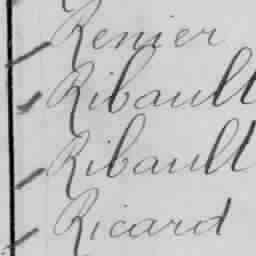 Renier
Ribault
Ribault
Ricard